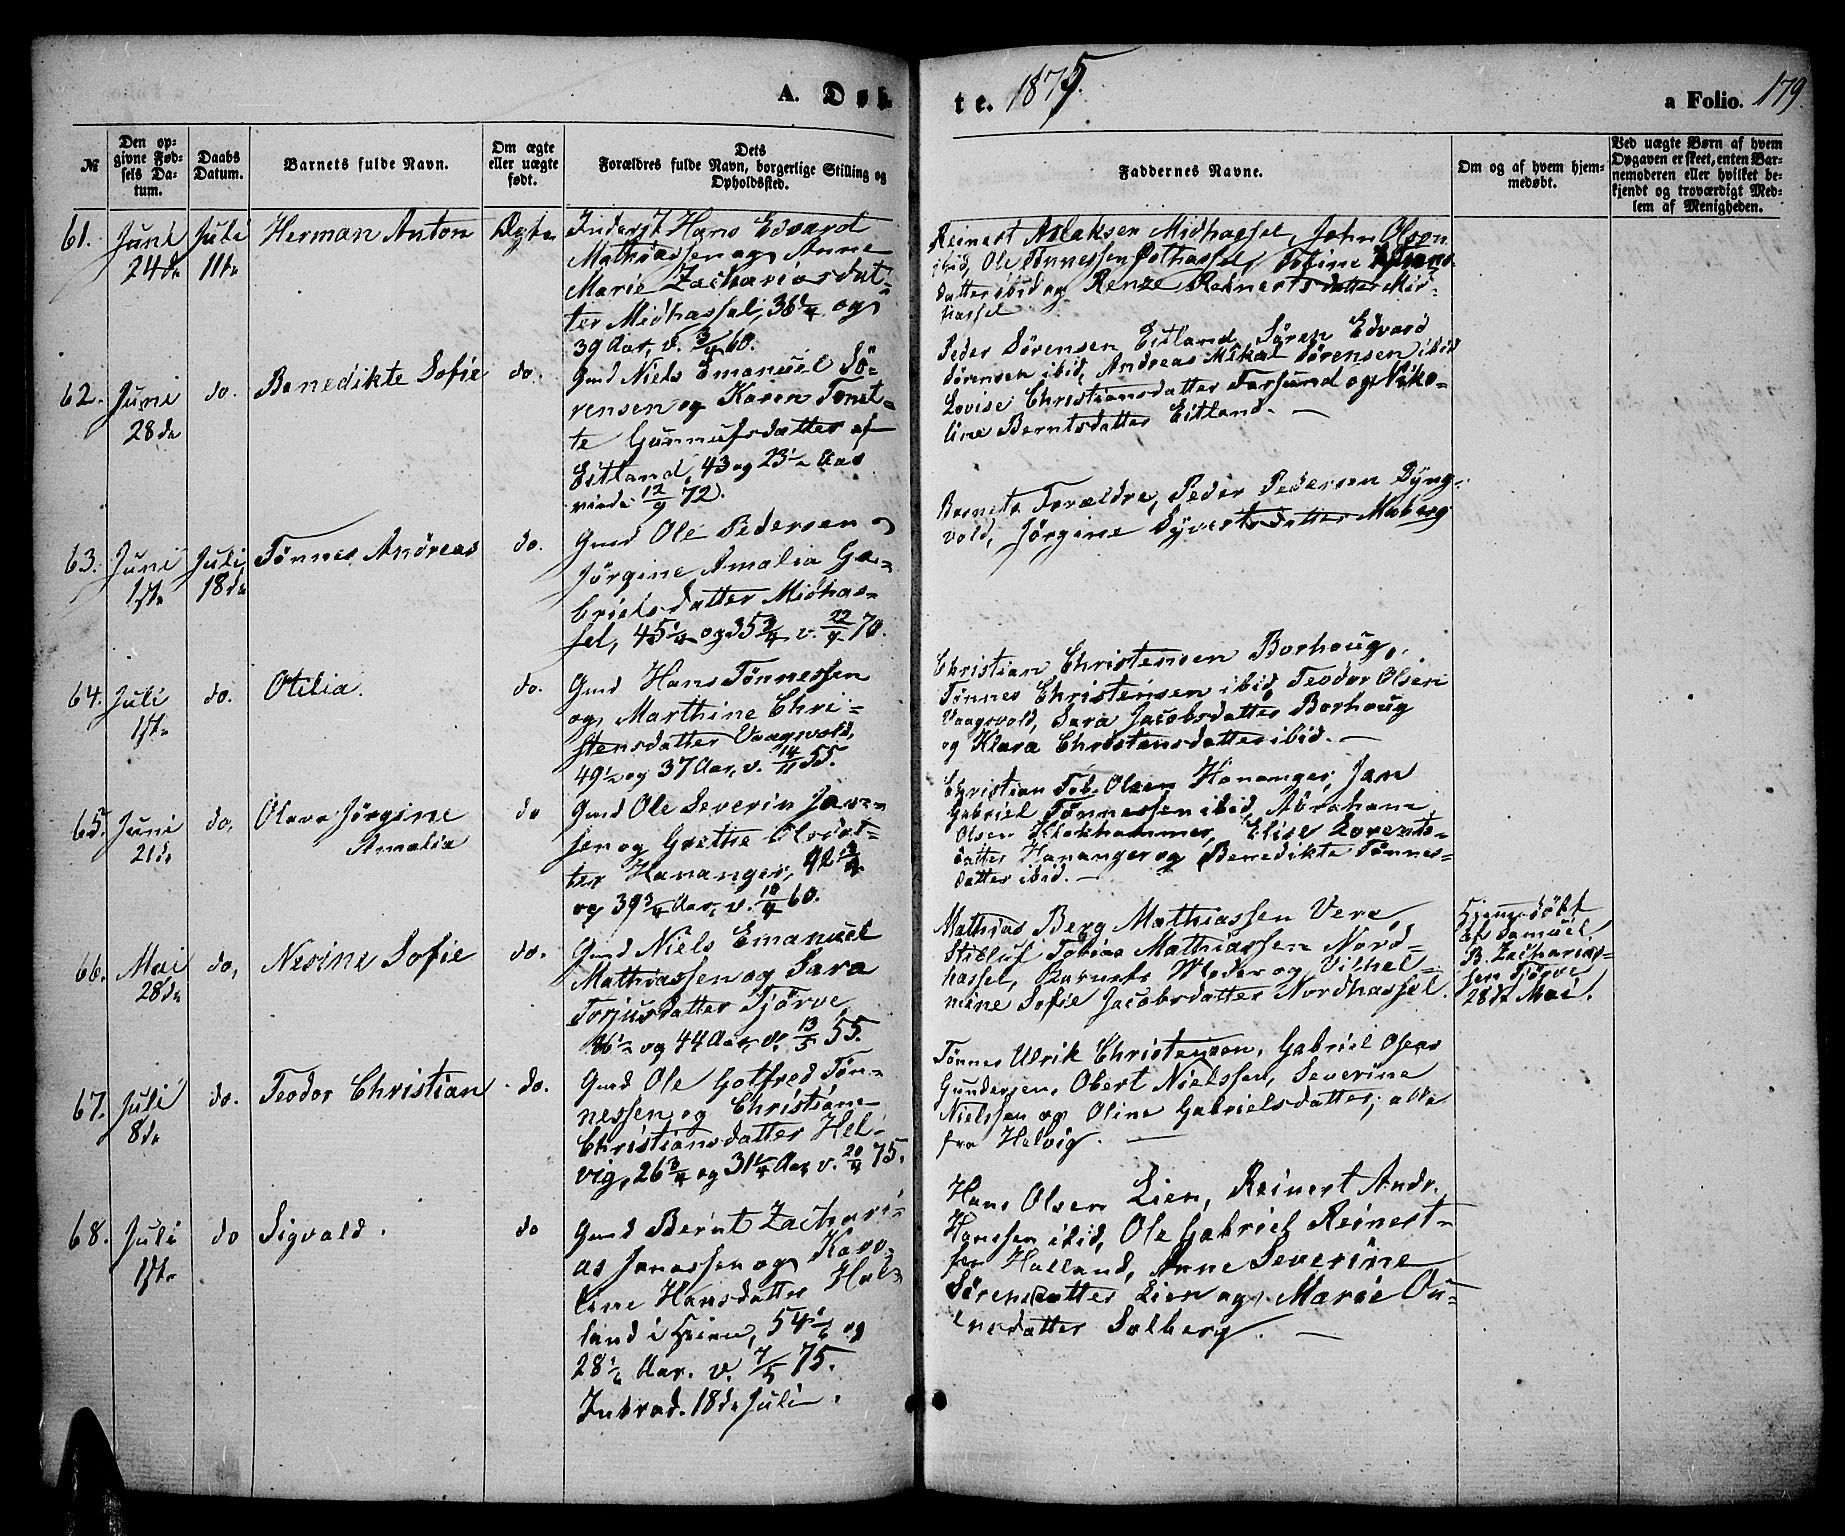 A. Døb-
te. 1875.
a Folio. 179.
№
Den op-
givne Fød-
sels Da-
tum.
Daabs
Datum.
Barnets fulde Navn.
Om ægte
eller uægte
født.
Dets
Forældres fulde Navn, borgerlige Stilling og
Opholdssted.
Faddernes Navne.
Om og af hvem hjem-
medøbt.
Ved uægte Børn af hvem
Opgaven er skeet, enten Bar-
nemoderen eller hvilket be-
kjendt og troværdigt Med-
lem af Menigheden.
61.
Juni
24de
Juli
11te
Herman Anton
Ægte
Hans Edvard
Mathiassen og Anne
Marie Zachariasdat-
ter Midhassel, 36¼ og
39 Aar, v. 3/4 60.
Reinert Aslaksen Midhassel, John Olsen
ibid, Ole Tønnessen Østhassel, Tofine
datter ibid og Renze Reinertsdatter Mid-
hassel
62.
Juni
28de
do.
Benedikte Sofie
do.
Gmd Niels Emanuel Sö-
rensen og Karen Tonet-
te Gunnufsdatter af
Eitland, 43 og 23½ Aar
viede 12/9 72.
Peder Sørensen Eitland, Sören Edvard
Sørensen ibid, Andreas Mikal Sørensen ibid
Lovise Christiansdatter Farsund og Niko-
line Berntsdatter Eitland. —
63.
Juni
1ste
Juli
18de
Tønnes Andreas
do.
Gmd Ole Pedersen og
Jørgine Amalia Ga-
brielsdatter Midhas-
sel, 45¼ og 35¾ v. 22/4 70.
Barnets Forældre, Peder Pedersen Dyng-
vold, Jørgine Syvertsdatter Maberg
64.
Juli
1ste
do.
Otilia.
do.
Gmd Hans Tønnessen
og Marthine Chri-
stensdatter Vaagsvold,
49½ og 37 Aar, v. 14/11 55.
Christian Christensen Borhoug,
Tønnes Christensen ibid, Teodor Olsen
Vaagsvold, Sara Jacobsdatter Borhoug
og Klara Christensdatter ibid. —
65.
Juni
21de
do,
Olava Jørgine
Amalia
do
Gmd Ole Severin Jan-
sen og Grethe Olsdat-
ter Hananger, 42¾
og 39¾ Aar, v. 12/4 60.
Christian Tob. Olsen Hananger, Jan
Gabriel Tønnessen ibid, Abraham
Olsen Klokhammer, Elise Lorents-
datter Hananger og Benedikte Tønnes-
datter ibid. —
66.
Mai
28de
do,
Nesine Sofie
do.
Gmd Niels Emanuel
Mathiassen og Sara
Torjusdatter Tjörve,
46½ og 44 Aar, v. 13/5 55.
Mathias Berg Mathiassen Vere,
Stilluf Tobias Mathiassen Nord-
hassel, Barnets Moder og Vilhel-
mine Sofie Jacobsdatter Nordhassel.
Hjemmedöbt
af Samuel
B. Zacharias-
sen Tjörve
28de Mai.
67.
Juli
8de
do.
Teodor Christian
do.
Gmd Ole Gotfred Tøn-
nessen og Christiane
Christiansdatter Hel-
vig, 26¾ og 31¼ Aar v. 20/4 75.
Tønnes Ulrik Christensen, Gabriel Oseas
Gundersen, Obert Nielssen, Severine
Nielssen og Oline Gabrielsdatter, alle
fra Helvig. —
68.
Juli
1ste
do
Sigvald.
do
Gmd Bernt Zachari-
as Janassen og Karo-
line Hansdatter Hal-
land i , 54 og
28 Aar. v. 7/5 75.
Indvad. 18de Juli.
Hans Olsen Lien, Reinert Andr.
Hanssen ibid, Ole Gabriel Reinert-
sen Halland, Anne Severine
Sørensdatter Lien og Marie Ou-
ensdatter Salberg. —